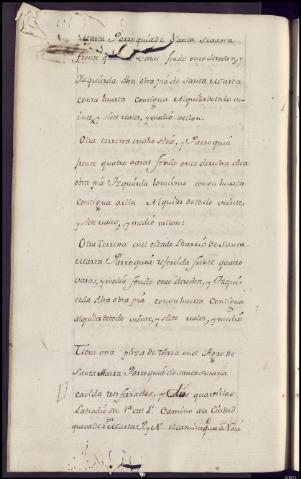 Marta Parroquia de Santa Susana
frente quatro varas fondo once derecha, y
Izquierda dha obra pia de Santa Marta
con su huerta contigua Alquiler de todo ve-
inte, y siete reales, y medio vellon.
Otra terrena en dho sitio, y Parroquia
frente quatro varas fondo once derecha dha
obra pia Izquierda lo mismo con su huerta
contigua a ella Alquiler de todo veinte,
y siete reales, y medio vellon:
Otra Terrena en el citado Barrio de Santa
Marta Parroquia referida frente quatro
varas, y media fondo once derecha, y Izquier-
da dha obra pia con su huerta contigua
alquiler de todo veinte, y siete reales, y medio
Tiene una pieza de tierra en el Agro de
Santa Marta Parroquia de Santa Susana
cavida tres ferrados, y dos quartillos
Labradio sec.º 1ª cal. L. Camino a la Ciudad
que va de Sta Marta P. y N. el camino que a Vaia